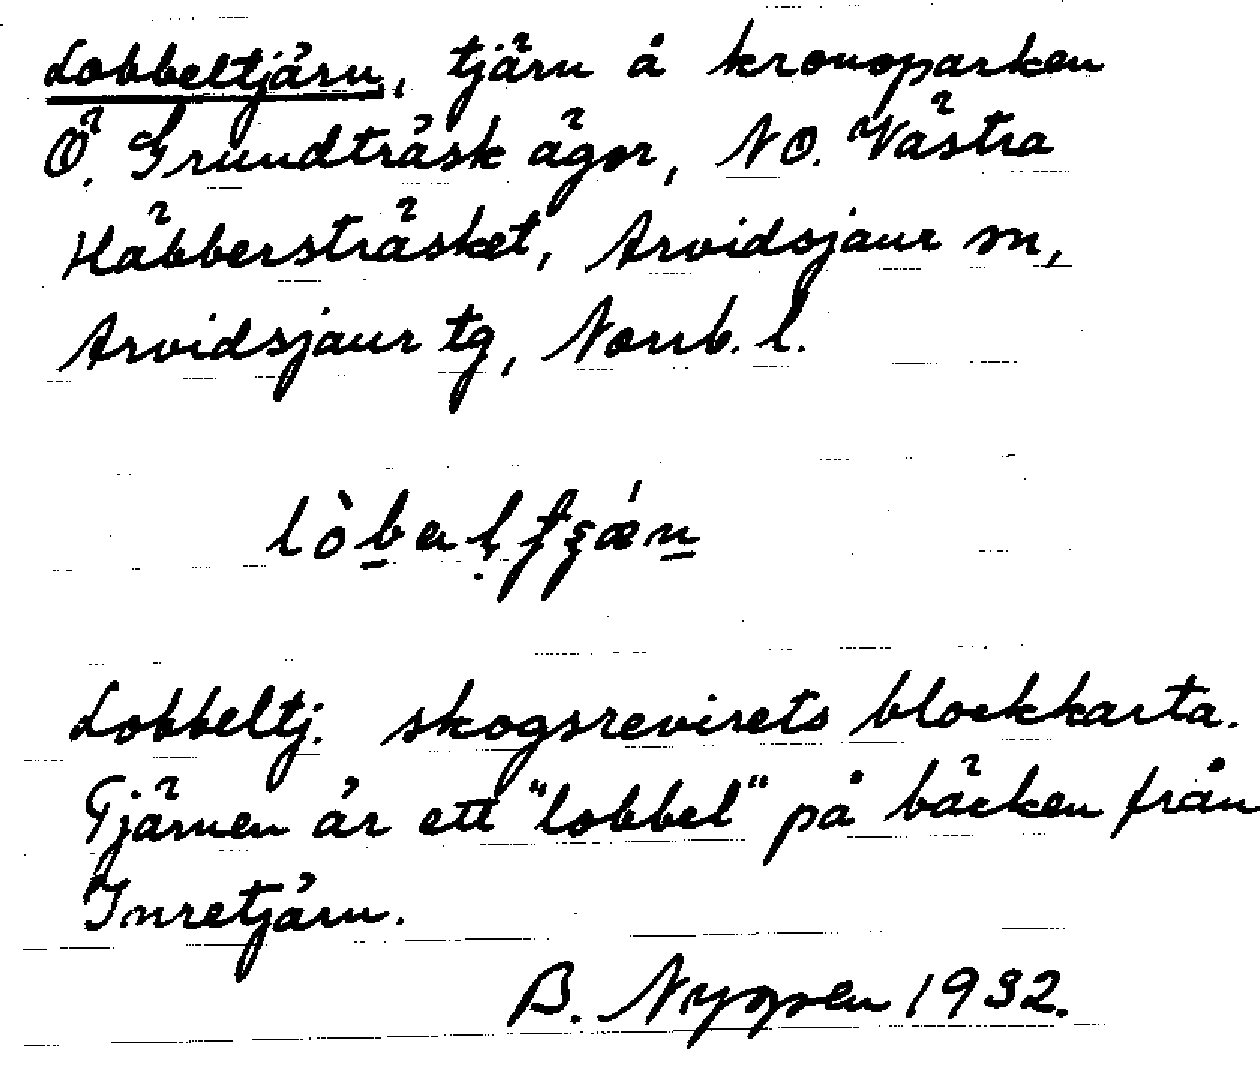 Lobbeltjärn, tjärn å kronoparken
Ö. Grundträsk ägor, NO. Västra
Häbbersträsket, Arvidsjaur sn,
Arvidsjaur tg, Norrb. l.
Lobbeltj. skogsrevirets blockkarta.
Tjärnen är ett "lobbel" på bäcken från
Inretjärn.
B. Nyman 1932.